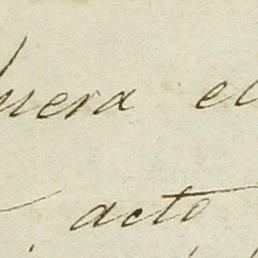 uera el
acto